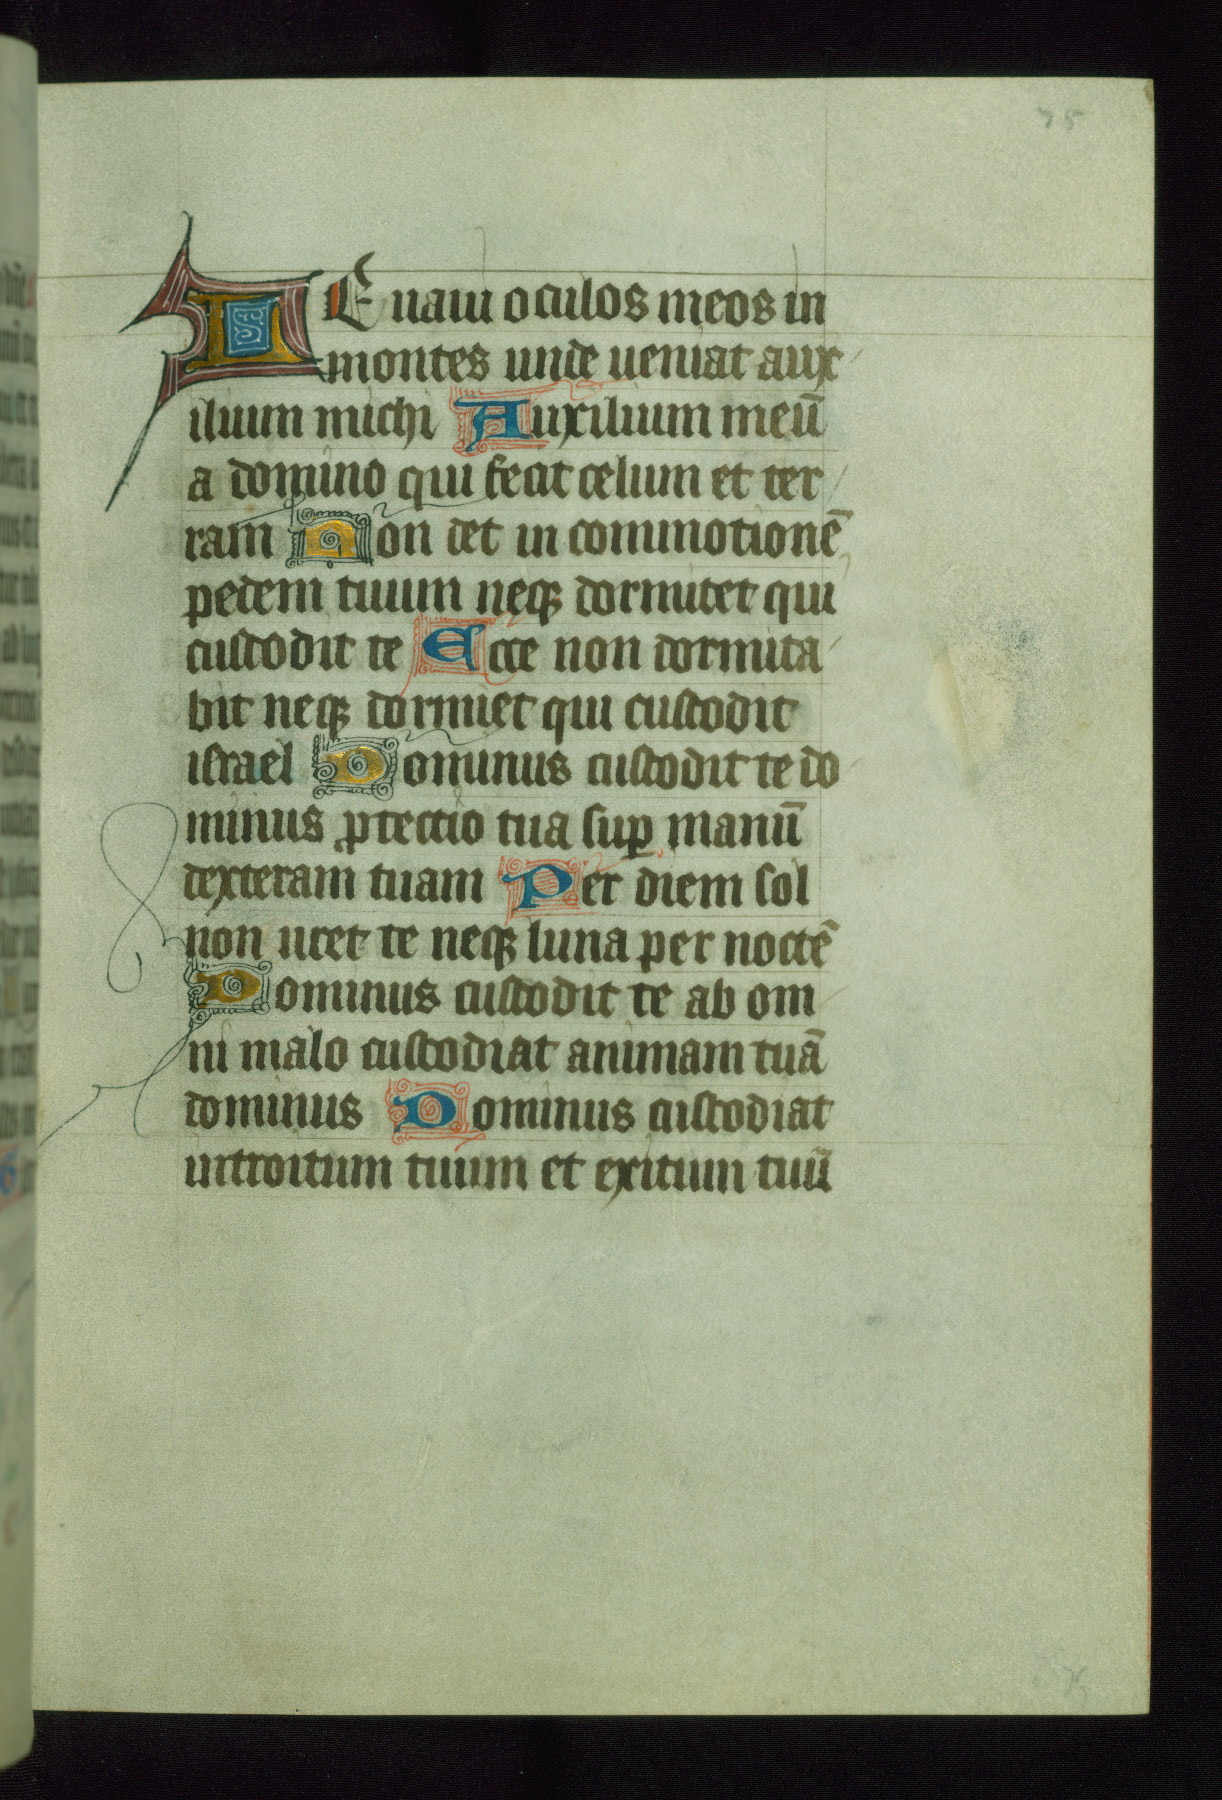 75
LEuaui oculos meos in
montes unde ueniat aux
ilium michi Auxilium meū
a domino qui fecit celum et ter
ram Non det in commotionē
pedem tuum neqꝫ dormitet qui
custodit te Ecce non dormita
bit neqꝫ dormiet qui custodit
israel Dominus custodit te do
minus ꝓtectio tua suꝑ manū
dexteram tuam Per diem sol
non uret te neqꝫ luna per noctē
Dominus custodit te ab om
ni malo custodiat animam tuā
dominus Dominus custodiat
introitum tuum et exitum tuū
75